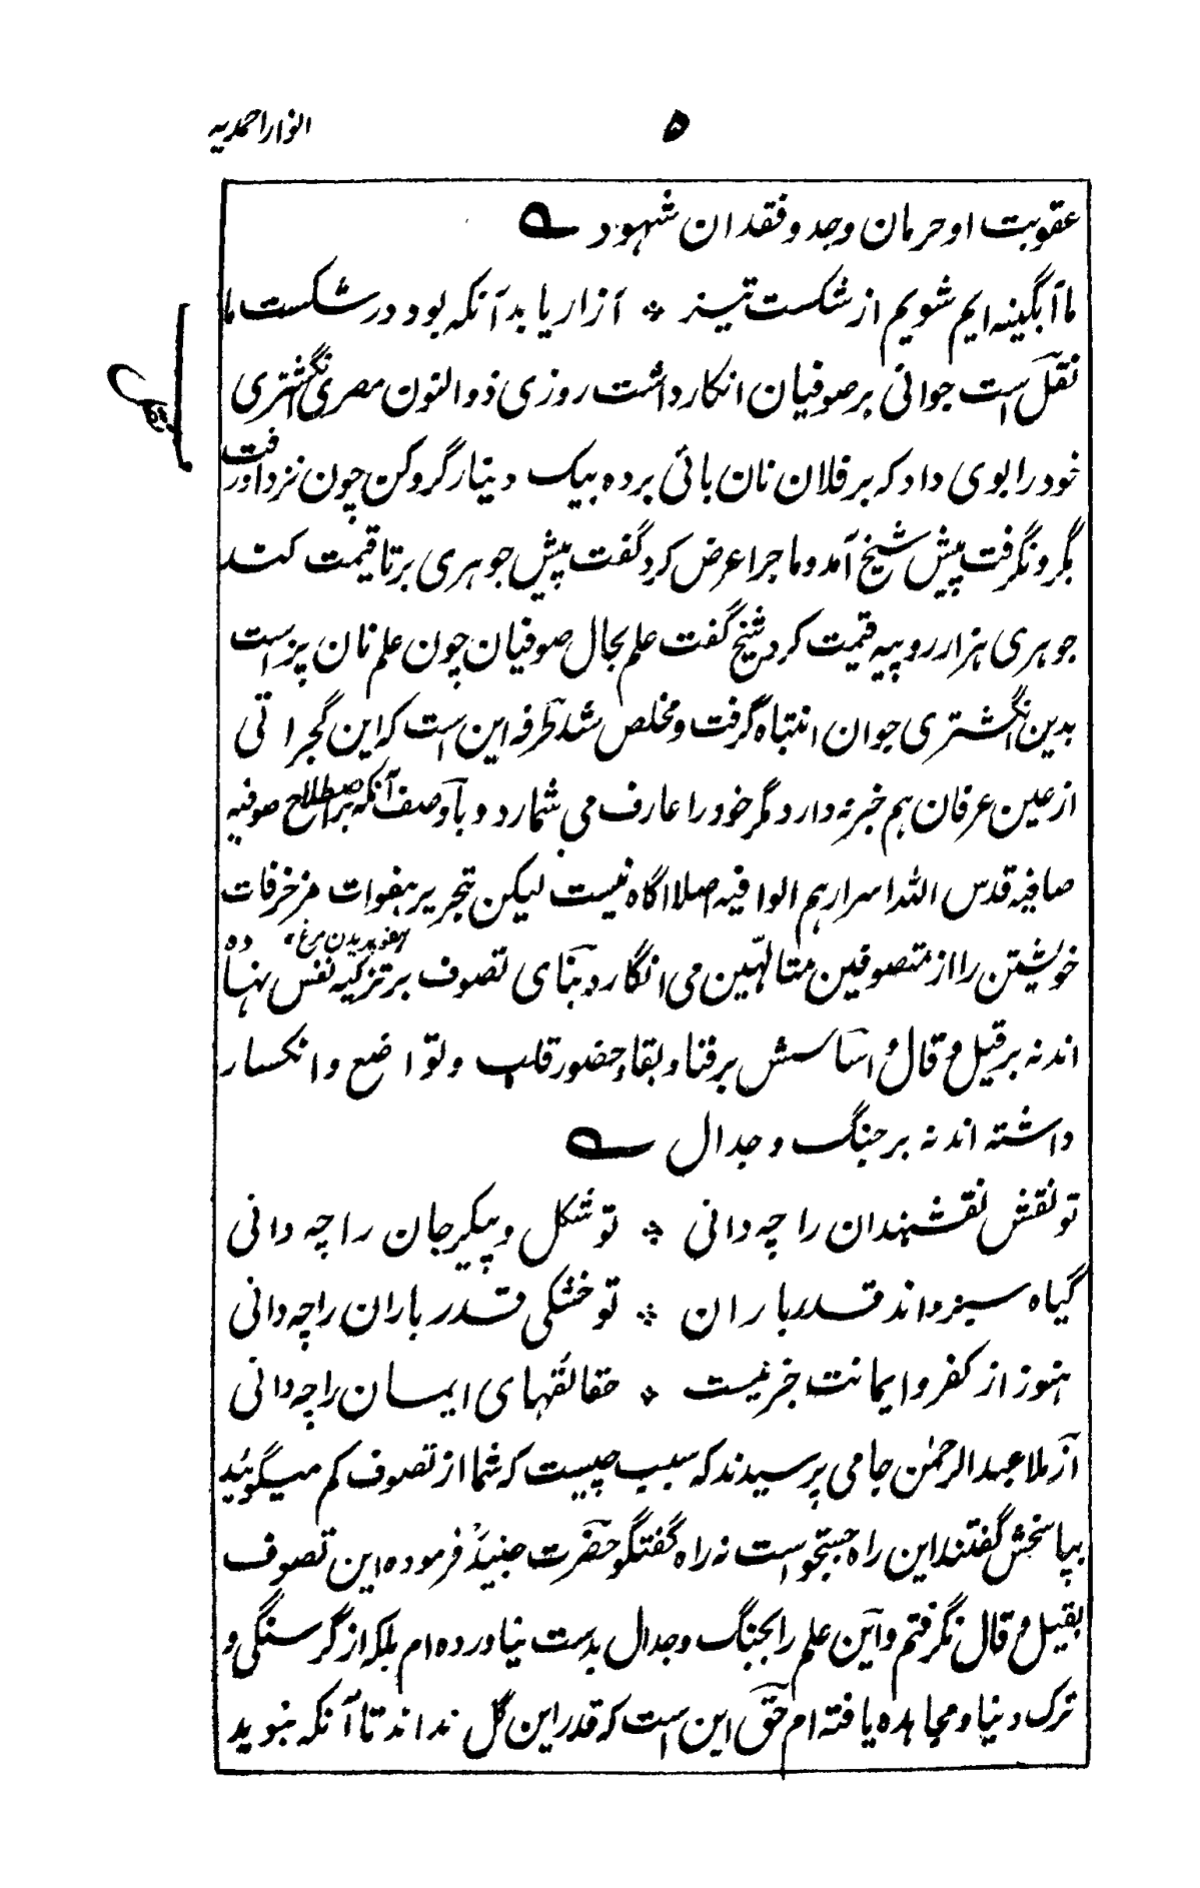 ۵
انوار احمدیه
عقوبت او حرمان وجد و فقدان شهود ـه
ما آبگینه ایم شویم از شکست تیز * آزار یابد آنکه بود در شکست ما
نقل است جوانی بر صوفیان انکار داشت روزی ذوالنون مصری انگشتری
خود را بوی داد که بر فلان نان بائی برده بیک دینار گرو کن چون نزد او رفت
بگرو نگرفت پیش شیخ آمد و ماجرا عرض کرد گفت پیش جوهری بر تا قیمت کند
جوهری هزار روپیه قیمت کرد شیخ گفت علم بحال صوفیان چون علم نان پز است
بدین انگشتری جوان انتباه گرفت و مخلص شد طرفه این است که این گجراتی
از عین عرفان هم خبر نه دارد مگر خود را عارف می شمارد و با وصف آنکه بر اصطلاح صوفیه
صافیه قدس الله اسرارهم الوافیه اصلا اگاه نیست لیکن بتحریر هفوات مزخرفات
خویشتن را از متصوفین متالهین می انگارد بنای تصوف بر تزکیه نفس نهاده
هفو پریدن مرغ
اند نه بر قیل و قال و اساسش بر فنا و بقاء و حضور قلب و تواضع و انکسار
داشته اند نه بر جنگ و جدال ـه
تو نقش نقشبندان را چه دانی * تو شکل و پیکر جان را چه دانی
گیاه سبز داند قدر باران * تو خشکی قدر باران را چه دانی
هنوز از کفر و ایمانت خبر نیست * حقائقهای ایمان را چه دانی
از ملا عبد الرحمٰن جامی پرسیدند که سبب چیست که شما از تصوف کم میگوئید
بپاسخش گفتند این راه جستجو است نه راه گفتگو حضرت جنیدؒ فرموده این تصوف
بقیل و قال نگرفتم و این علم را بجنگ و جدال بدست نیاورده ام بلکه از گرسنگی و
ترک دنیا و مجاهده یافته ام حق این است که قدر این گل نداند تا آنکه نبوید